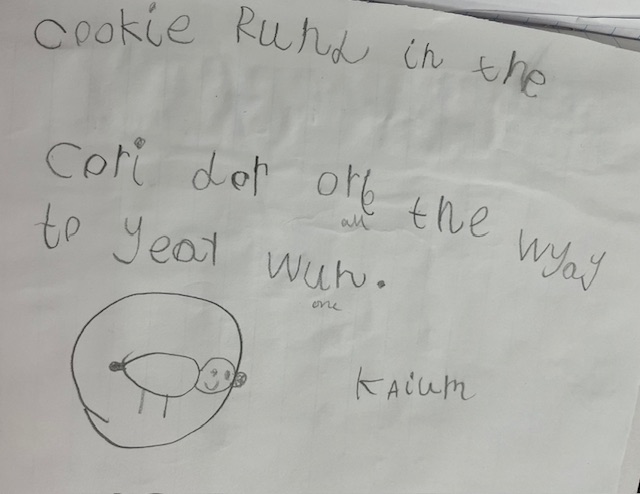 cookie Rund in the
Cori dor orl the wyay
all
to year wun.
one
KAium